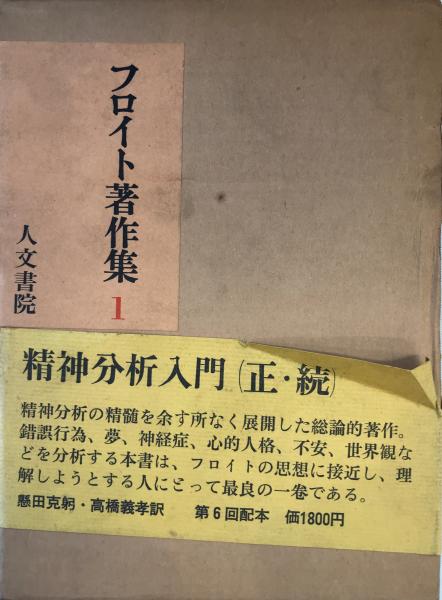 フロイト著作集 1
人文書院
精神分析入門(正・続)
精神分析の精髄を余す所なく展開した総論的著作。
錯誤行為、夢、神経症、心的人格、不安、世界観な
どを分析する本書は、フロイトの思想に接近し、理
解しようとする人にとって最良の一巻である。
懸田克躬・高橋義孝訳 第6回配本 価1800円